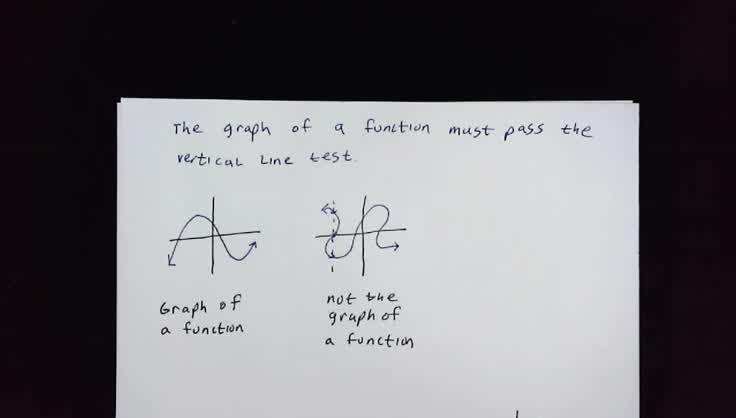 The graph of a function must pass the
vertical line test.
Graph of
a function
not the
graph of
a function